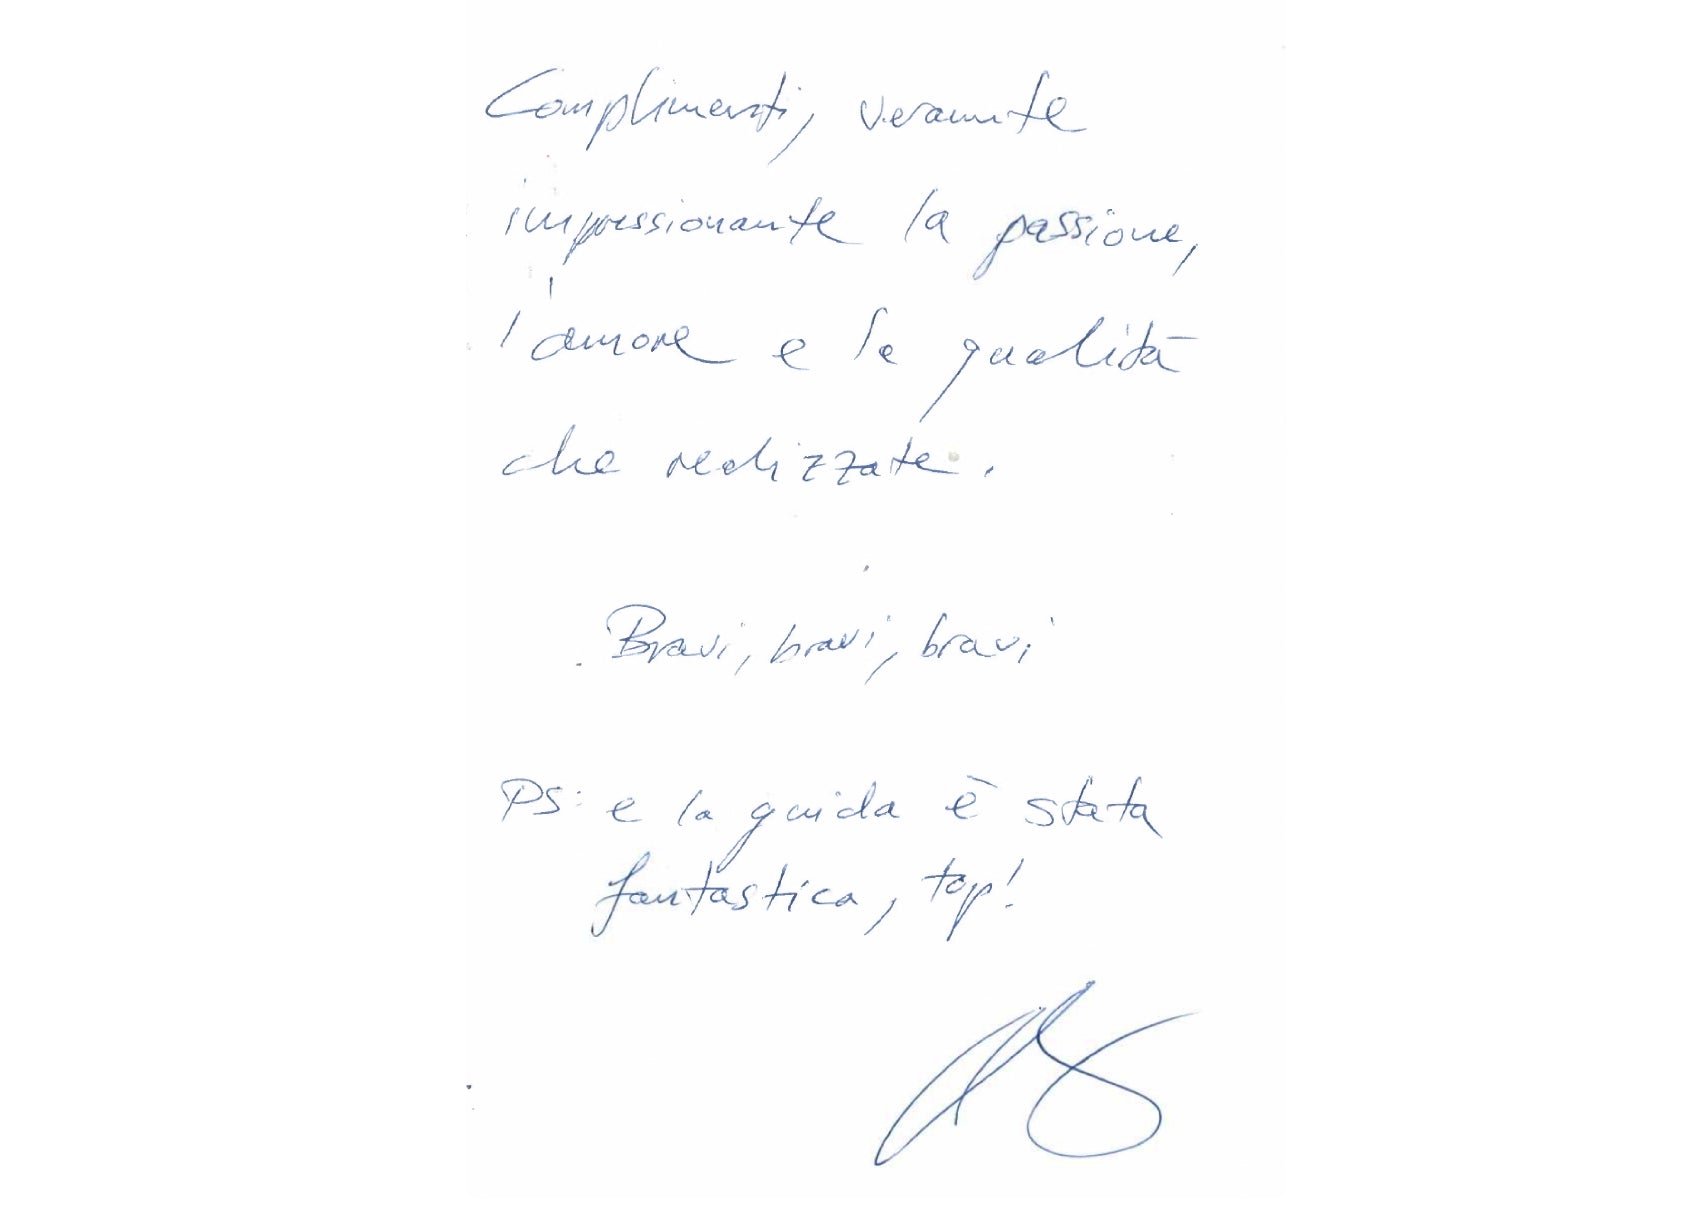 Complimenti, veramente
impressionante la passione,
l'amore e la qualità
che realizzate.
Bravi, bravi, bravi
PS: e la guida è stata
fantastica, top!